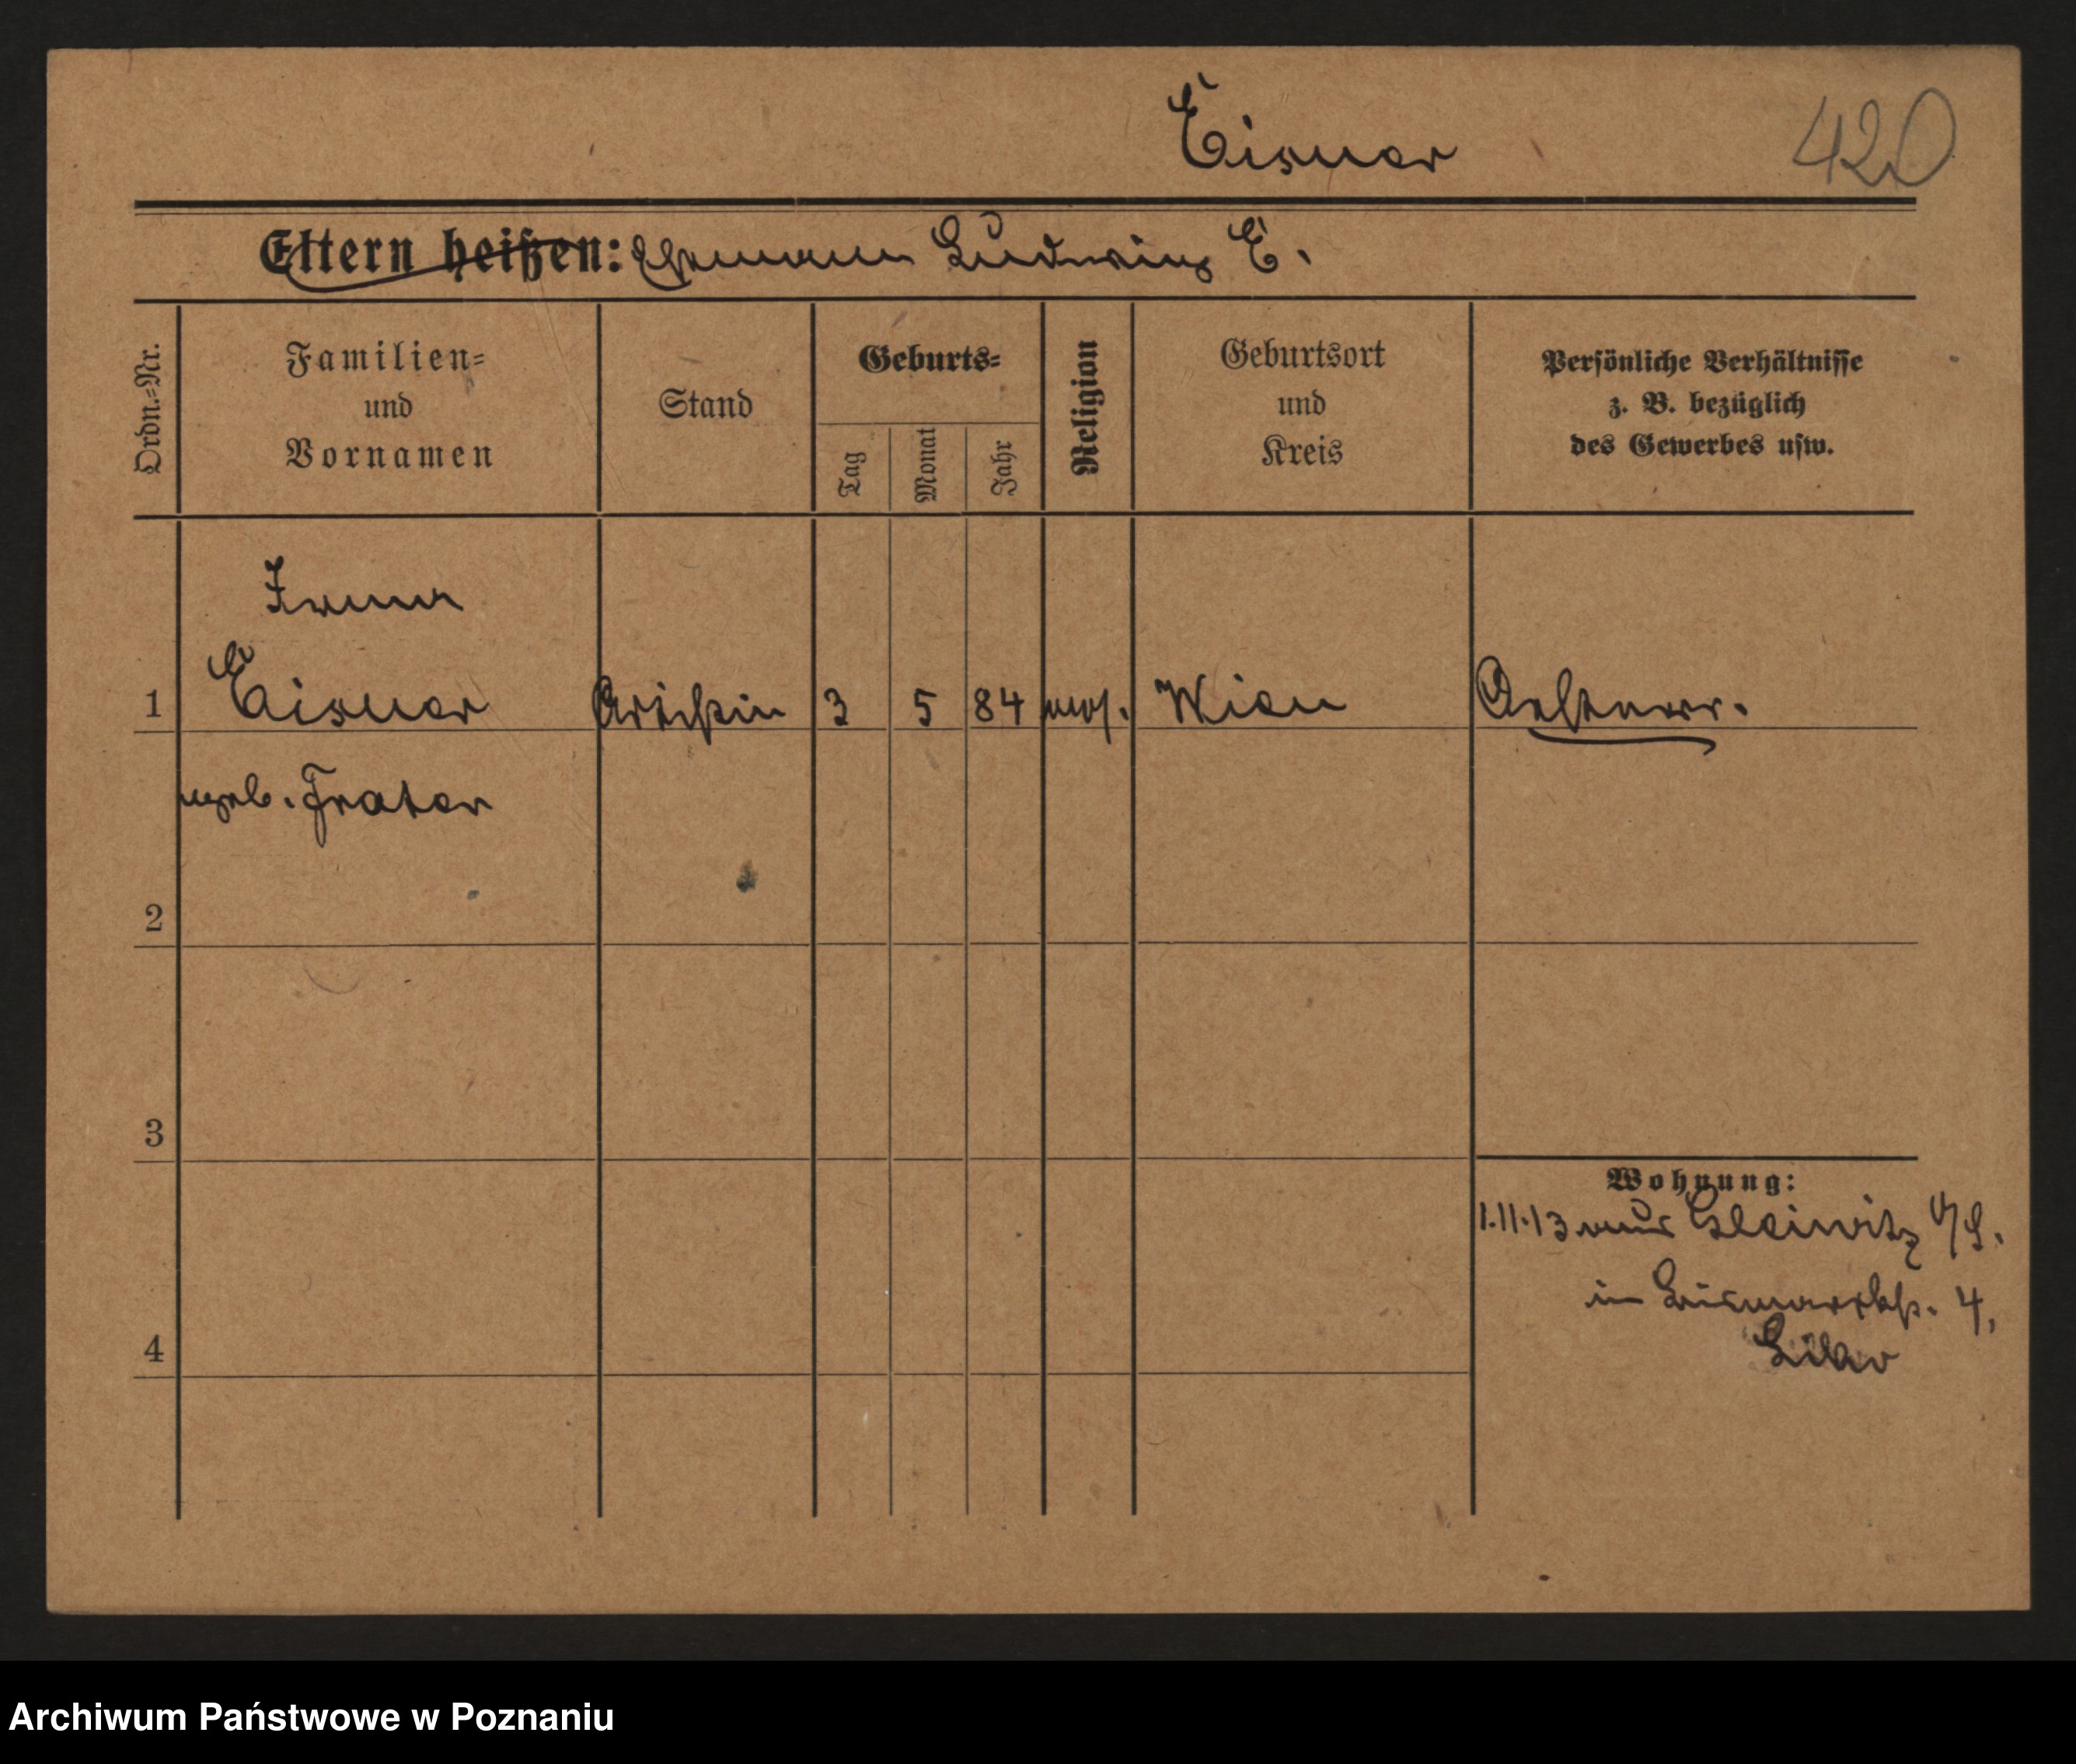 Eisner 420
Eltern heißen: Ehemann Ludwig E.
Ordn.-Nr.
Familien-
und
Vornamen
Stand
Geburts-
Tag
Monat
Jahr
Religion
Geburtsort
und
Kreis
Persönliche Verhältnisse
z. B. bezüglich
des Gewerbes usw.
Irma
1 Eisner Artistin 3 5 84 mos. Wien Oesterr.
geb. Frater
2
3
Wohnung:
1.11.13 aus Gleiwitz O/S.
in Bismarckstr. 4,
4
Archiwum Państwowe w Poznaniu